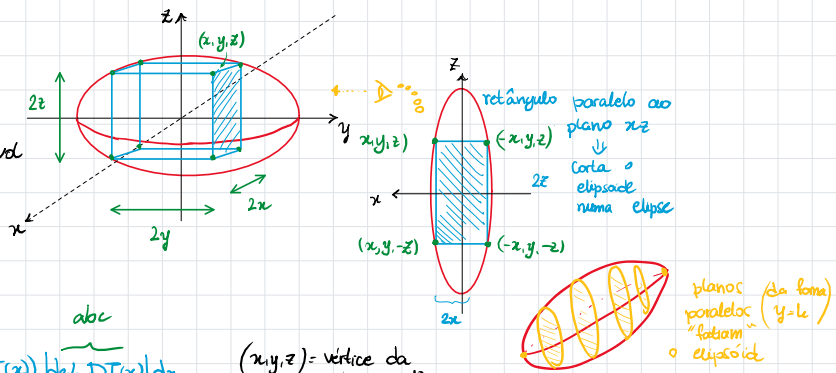 z
(x,y,z)
2z
y
x
2x
2y
abc
z
retângulo paralelo ao
plano xz
⇓
Corta o
elipsoide
numa elipse
x,y,z)
(-x,y,z)
x
2z
(x,y,-z)
(-x,y,-z)
2x
planos
paralelos
(da forma
y=k)
"fatiam"
o elipsóide
(x,y,z) = vértice da